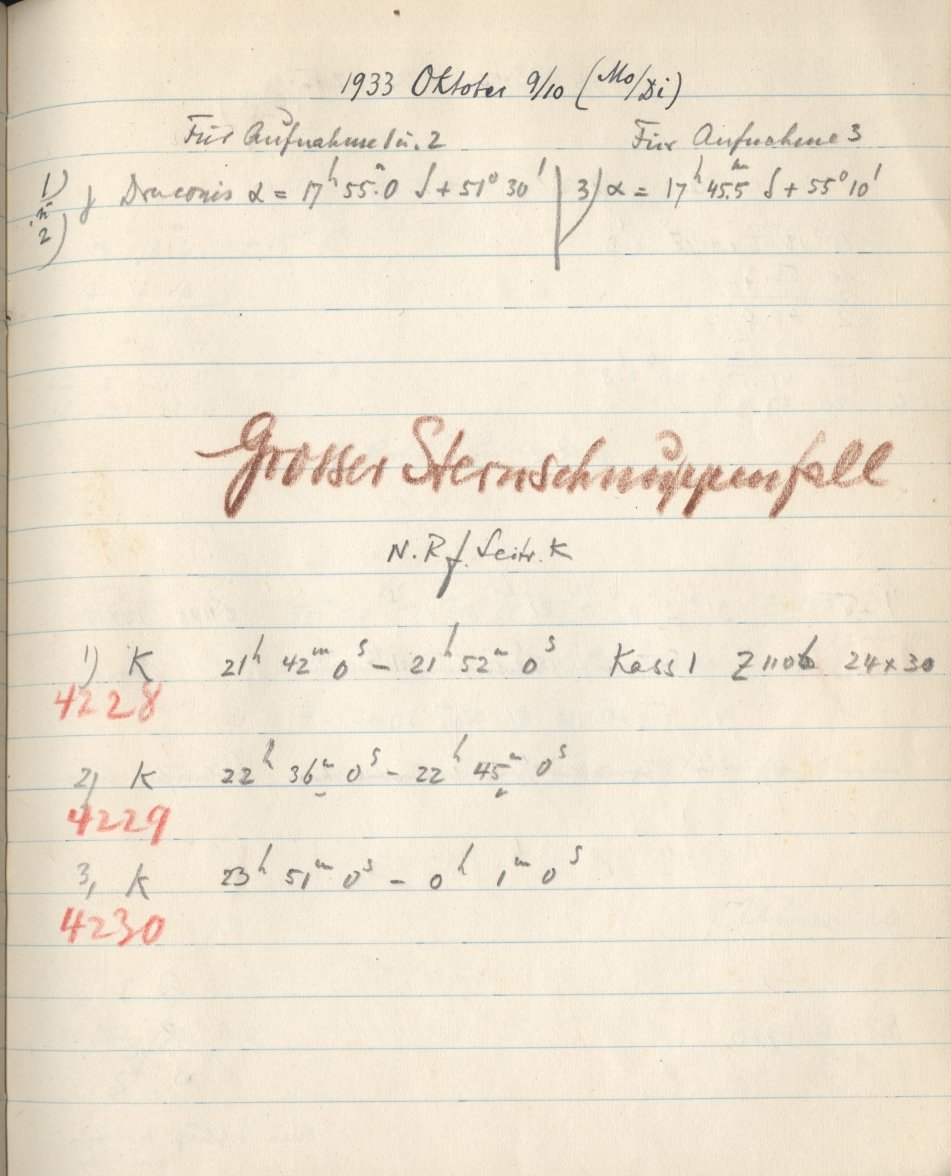 1933 Oktober 9/10 (Mo/Di)
Für Aufnahme 1 u. 2 Für Aufnahme 3
1) u 2) γ Draconis α = 17h 55m.0 δ + 51° 30' | 3) α = 17h 45.5m δ + 55° 10'
Grosser Sternschnuppenfall
N. Rf. K
1) K 21h 42m 0s – 21h 52m 0s Kass 1 Z 24 x 30
4228
2) K 22h 36m 0s – 22h 45m 0s
4229
3) K 23h 51m 0s – 0h 1m 0s
4230